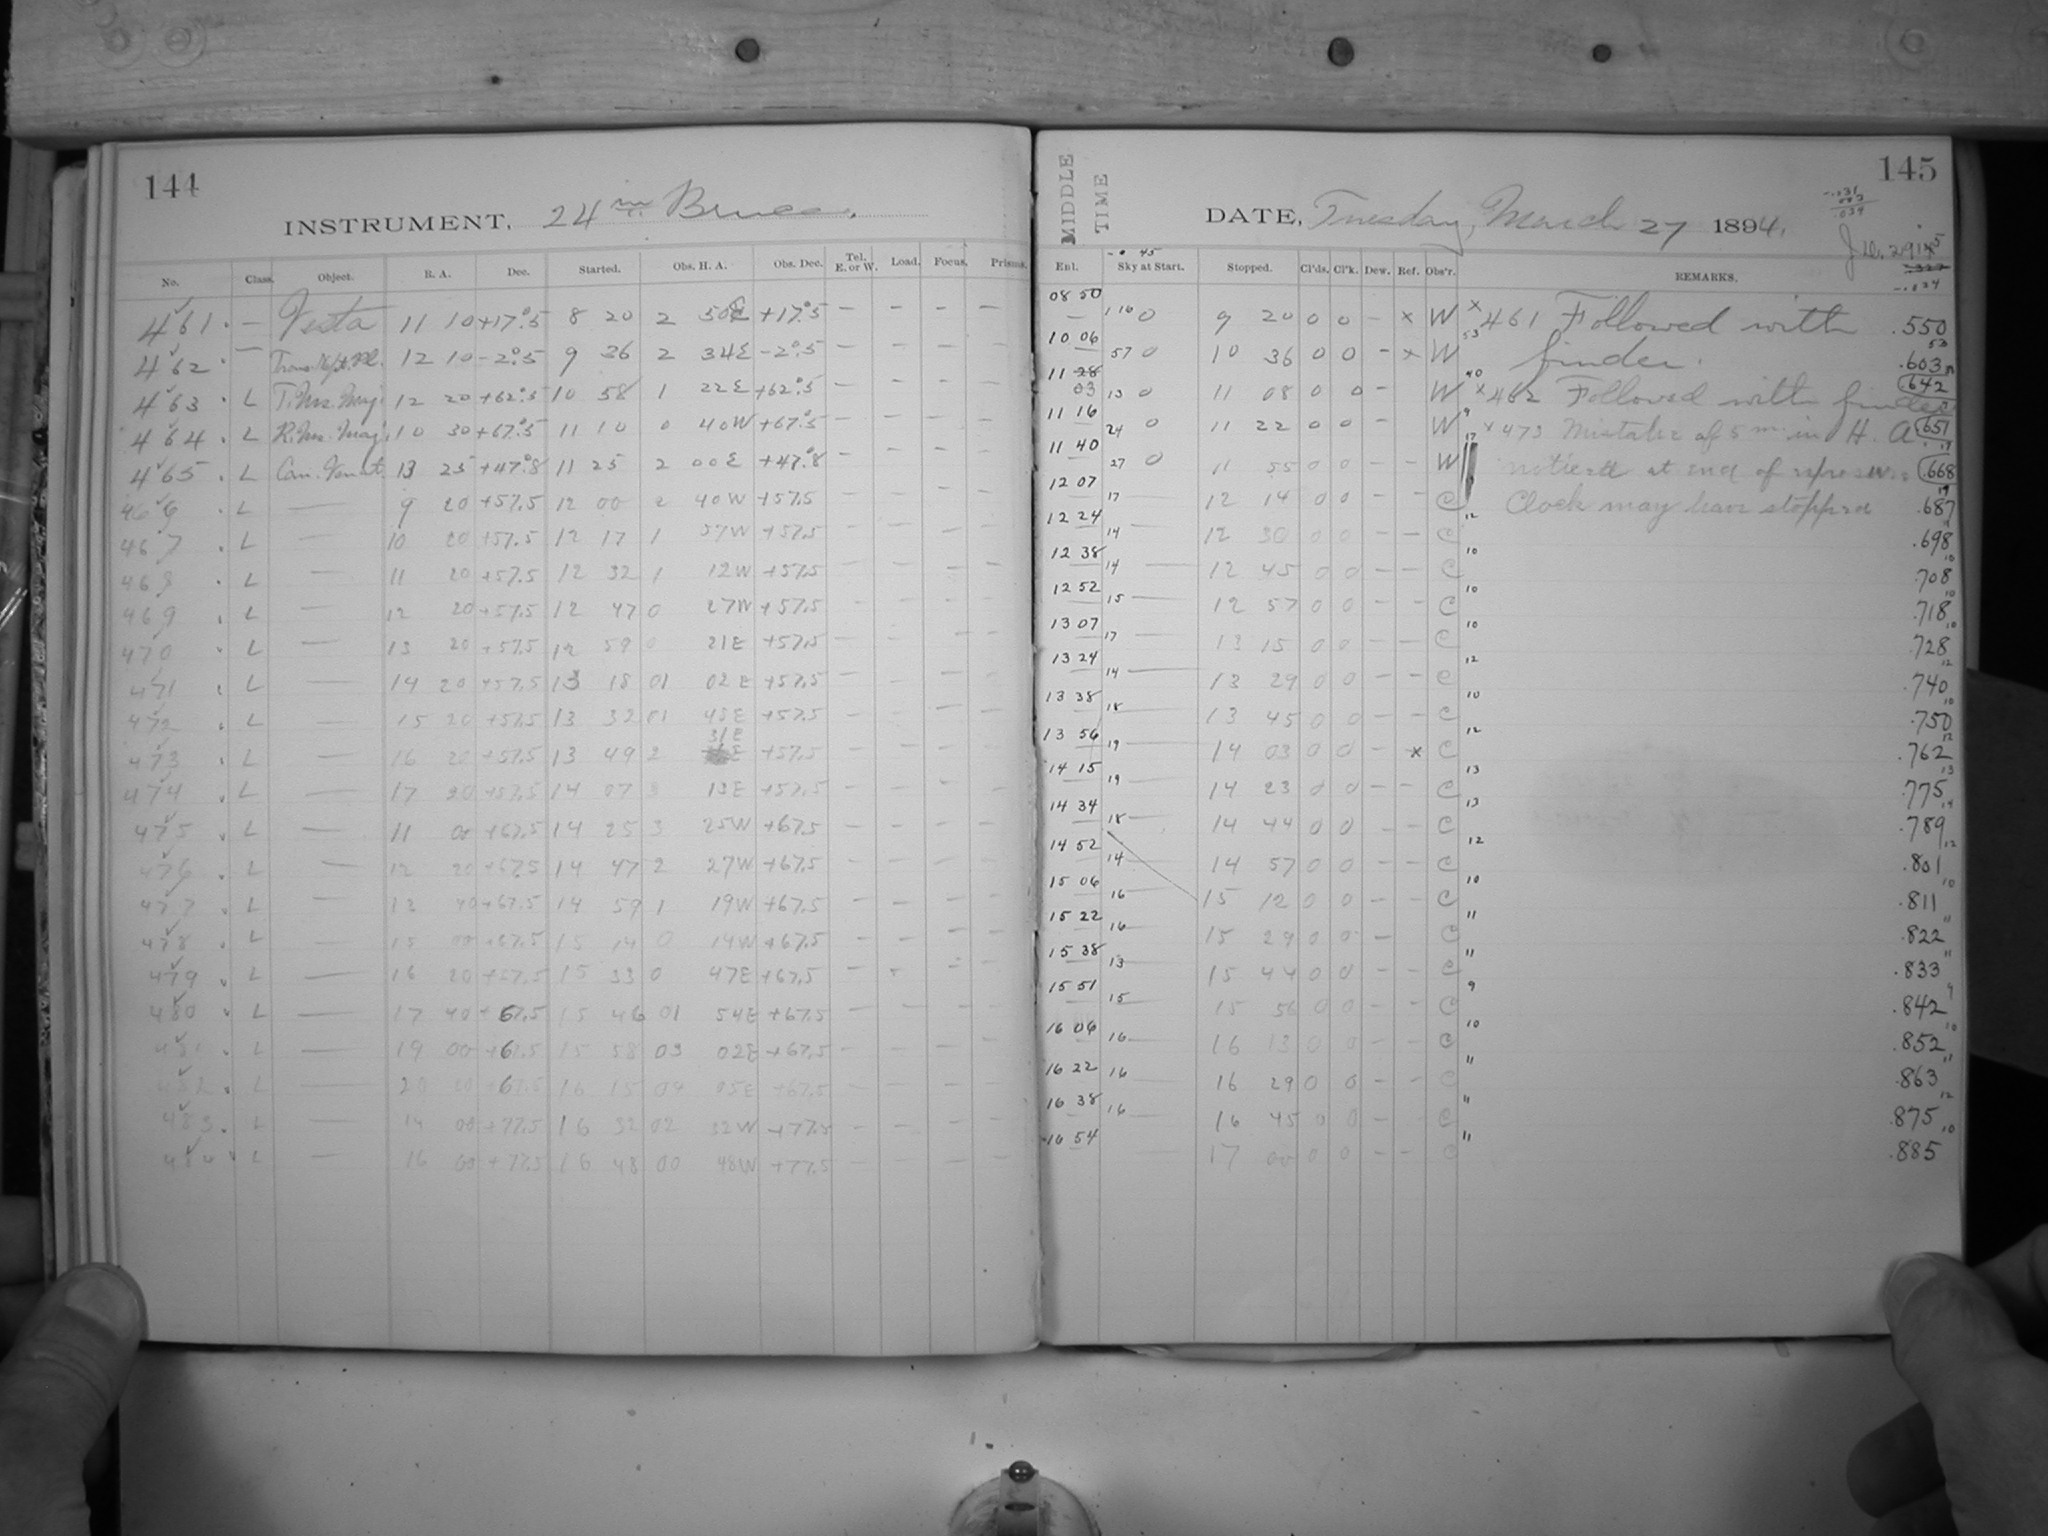 144
INSTRUMENT, 24 in. Bruce.
No. Class. Object. R. A. Dec. Started. Obs. H. A. Obs. Dec. Tel. E. or W. Load. Focus. Prisms.
461 — Vesta 11 10 +17°5 8 20 2 50E +17°5 — — — —
462 — 12 10 -2°5 9 36 2 34E -2°5 — — — —
463 L T. Urs. Maj. 12 20 +62°5 10 58 1 22E +62°5 — — — —
464 L R. Urs. Maj. 10 30 +67°5 11 10 0 40W +67°5 — — — —
465 L Can. Venat. 13 25 +47°8 11 25 2 00E +47°8 — — — —
466 L — 9 20 +57.5 12 00 2 40W +57.5 — — — —
467 L — 10 20 +57.5 12 17 1 57W +57.5 — — — —
468 L — 11 20 +57.5 12 32 1 12W +57.5 — — — —
469 L — 12 20 +57.5 12 47 0 27W +57.5 — — — —
470 L — 13 20 +57.5 12 59 0 21E +57.5 — — — —
471 L — 14 20 +57.5 13 18 01 02E +57.5 — — — —
472 L — 15 20 +57.5 13 32 01 48E +57.5 — — — —
473 L — 16 20 +57.5 13 49 2 31E +57.5 — — — —
474 L — 17 20 +57.5 14 07 3 13E +57.5 — — — —
475 L — 11 00 +67.5 14 25 3 25W +67.5 — — — —
476 L — 12 20 +67.5 14 47 2 27W +67.5 — — — —
477 L — 13 40 +67.5 14 59 1 19W +67.5 — — — —
478 L — 15 00 +67.5 15 14 0 14W +67.5 — — — —
479 L — 16 20 +67.5 15 33 0 47E +67.5 — — — —
480 L — 17 40 +67.5 15 46 01 54E +67.5 — — — —
481 L — 19 00 +67.5 15 58 03 02E +67.5 — — — —
482 L — 20 20 +67.5 16 15 04 05E +67.5 — — — —
483 L — 14 00 +77.5 16 32 02 32W +77.5 — — — —
484 L — 16 00 +77.5 16 48 00 48W +77.5 — — — —
145
MIDDLE TIME
DATE, Tuesday, March 27 1894.
Enl. Sky at Start. Stopped. Cl'ds. Cl'k. Dew. Ref. Obs'r. REMARKS.
08 50 1 16 0 9 20 0 0 — x W x 461 Followed with .550
10 06 57 0 10 36 0 0 — x W 53 finder. .603
11 28 03 13 0 11 08 0 0 — W 40 x 462 Followed with finder 642
11 16 24 0 11 22 0 0 — W 9 x 473 Mistake of 5 m. in H. A. 651
11 40 27 0 11 55 0 0 — — W 17 noticed at end of exposure. 668
12 07 17 12 14 0 0 — — C Clock may have stopped .687
12 24 14 12 30 0 0 — — C 12 .698
12 38 14 12 45 0 0 — — C 10 .708
12 52 15 12 57 0 0 — — C 10 .718
13 07 17 13 15 0 0 — — C 10 .728
13 24 14 13 29 0 0 — — C 12 .740
13 38 18 13 45 0 0 — — C 10 .750
13 56 19 14 03 0 0 — x C 12 .762
14 15 19 14 23 0 0 — — C 13 .775
14 34 18 14 44 0 0 — — C 13 .789
14 52 14 14 57 0 0 — — C 12 .801
15 06 16 15 12 0 0 — — C 10 .811
15 22 16 15 29 0 0 — C 11 .822
15 38 13 15 44 0 0 — — C 11 .833
15 51 15 15 56 0 0 — — C 9 .842
16 06 16 16 13 0 0 — — C 10 .852
16 22 16 16 29 0 0 — — C 11 .863
16 38 16 16 45 0 0 — — C 11 .875
16 54 17 00 0 0 — — C 11 .885